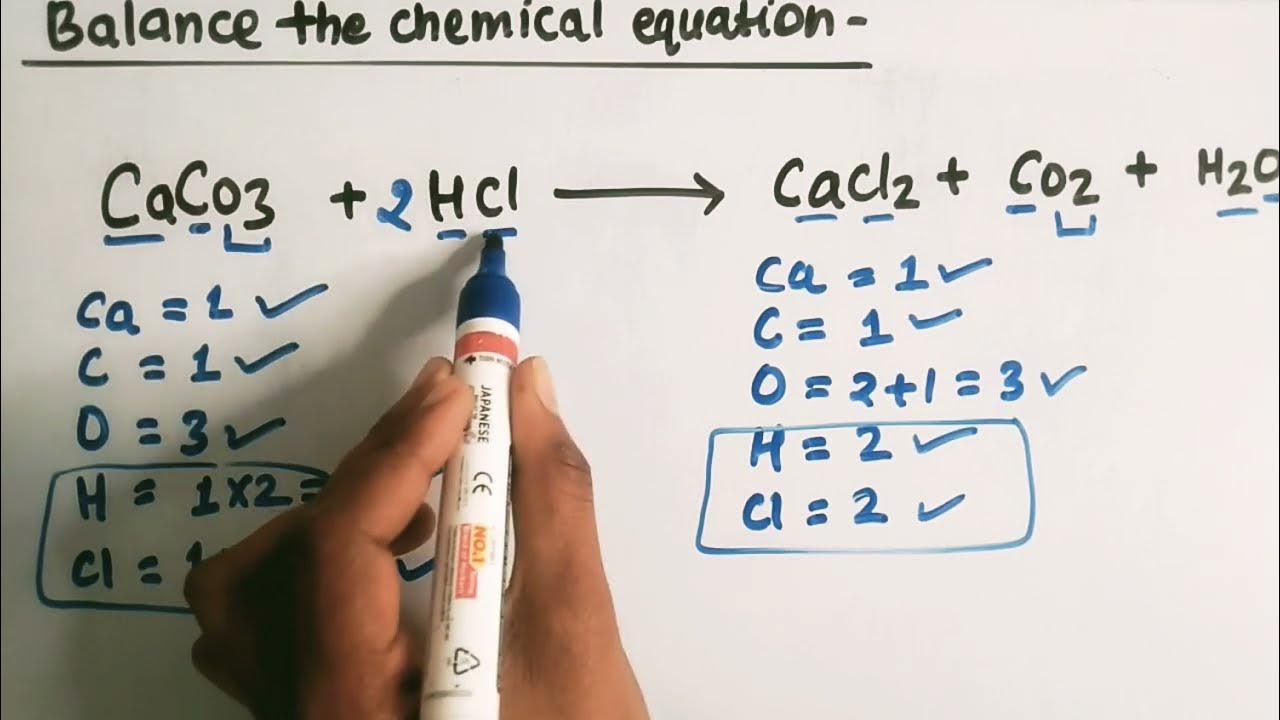 Balance the chemical equation -
CaCo3 + 2 HCl → CaCl2 + Co2 + H2O
Ca = 1 ✓
C = 1 ✓
O = 3 ✓
H = 1×2 =
Cl = 1
✓
Ca = 1 ✓
C = 1 ✓
O = 2+1 = 3 ✓
H = 2 ✓
Cl = 2 ✓
JAPANESE
CE
NO.1